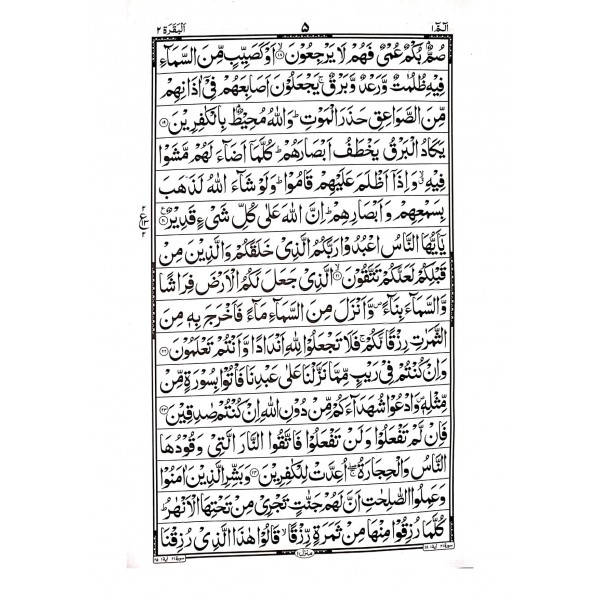 الٓمّٓ ١ ۵ اَلْبَقَرَة ٢
صُمٌّۢ بُكْمٌ عُمْیٌ فَهُمْ لَا یَرْجِعُوْنَ ﴿١٨﴾ اَوْ كَصَیِّبٍ مِّنَ السَّمَآءِ
فِیْهِ ظُلُمٰتٌ وَّرَعْدٌ وَّبَرْقٌ ۚ یَجْعَلُوْنَ اَصَابِعَهُمْ فِیْۤ اٰذَانِهِمْ
مِّنَ الصَّوَاعِقِ حَذَرَ الْمَوْتِ ؕ وَاللّٰهُ مُحِیْطٌۢ بِالْكٰفِرِیْنَ ﴿١٩﴾
یَكَادُ الْبَرْقُ یَخْطَفُ اَبْصَارَهُمْ ؕ كُلَّمَاۤ اَضَآءَ لَهُمْ مَّشَوْا
فِیْهِ ۙۗ وَاِذَاۤ اَظْلَمَ عَلَیْهِمْ قَامُوْا ؕ وَلَوْ شَآءَ اللّٰهُ لَذَهَبَ
بِسَمْعِهِمْ وَاَبْصَارِهِمْ ؕ اِنَّ اللّٰهَ عَلٰی كُلِّ شَیْءٍ قَدِیْرٌ ﴿٢٠﴾
یٰۤاَیُّهَا النَّاسُ اعْبُدُوْا رَبَّكُمُ الَّذِیْ خَلَقَكُمْ وَالَّذِیْنَ مِنْ
قَبْلِكُمْ لَعَلَّكُمْ تَتَّقُوْنَ ﴿٢١﴾ الَّذِیْ جَعَلَ لَكُمُ الْاَرْضَ فِرَاشًا
وَّالسَّمَآءَ بِنَآءً ۪ وَّاَنْزَلَ مِنَ السَّمَآءِ مَآءً فَاَخْرَجَ بِهٖ مِنَ
الثَّمَرٰتِ رِزْقًا لَّكُمْ ۚ فَلَا تَجْعَلُوْا لِلّٰهِ اَنْدَادًا وَّاَنْتُمْ تَعْلَمُوْنَ ﴿٢٢﴾
وَاِنْ كُنْتُمْ فِیْ رَیْبٍ مِّمَّا نَزَّلْنَا عَلٰی عَبْدِنَا فَاْتُوْا بِسُوْرَةٍ مِّنْ
مِّثْلِهٖ ۪ وَادْعُوْا شُهَدَآءَكُمْ مِّنْ دُوْنِ اللّٰهِ اِنْ كُنْتُمْ صٰدِقِیْنَ ﴿٢٣﴾
فَاِنْ لَّمْ تَفْعَلُوْا وَلَنْ تَفْعَلُوْا فَاتَّقُوا النَّارَ الَّتِیْ وَقُوْدُهَا
النَّاسُ وَالْحِجَارَةُ ۖۚ اُعِدَّتْ لِلْكٰفِرِیْنَ ﴿٢٤﴾ وَبَشِّرِ الَّذِیْنَ اٰمَنُوْا
وَعَمِلُوا الصّٰلِحٰتِ اَنَّ لَهُمْ جَنّٰتٍ تَجْرِیْ مِنْ تَحْتِهَا الْاَنْهٰرُ ؕ
كُلَّمَا رُزِقُوْا مِنْهَا مِنْ ثَمَرَةٍ رِّزْقًا ۙ قَالُوْا هٰذَا الَّذِیْ رُزِقْنَا
منزل ١